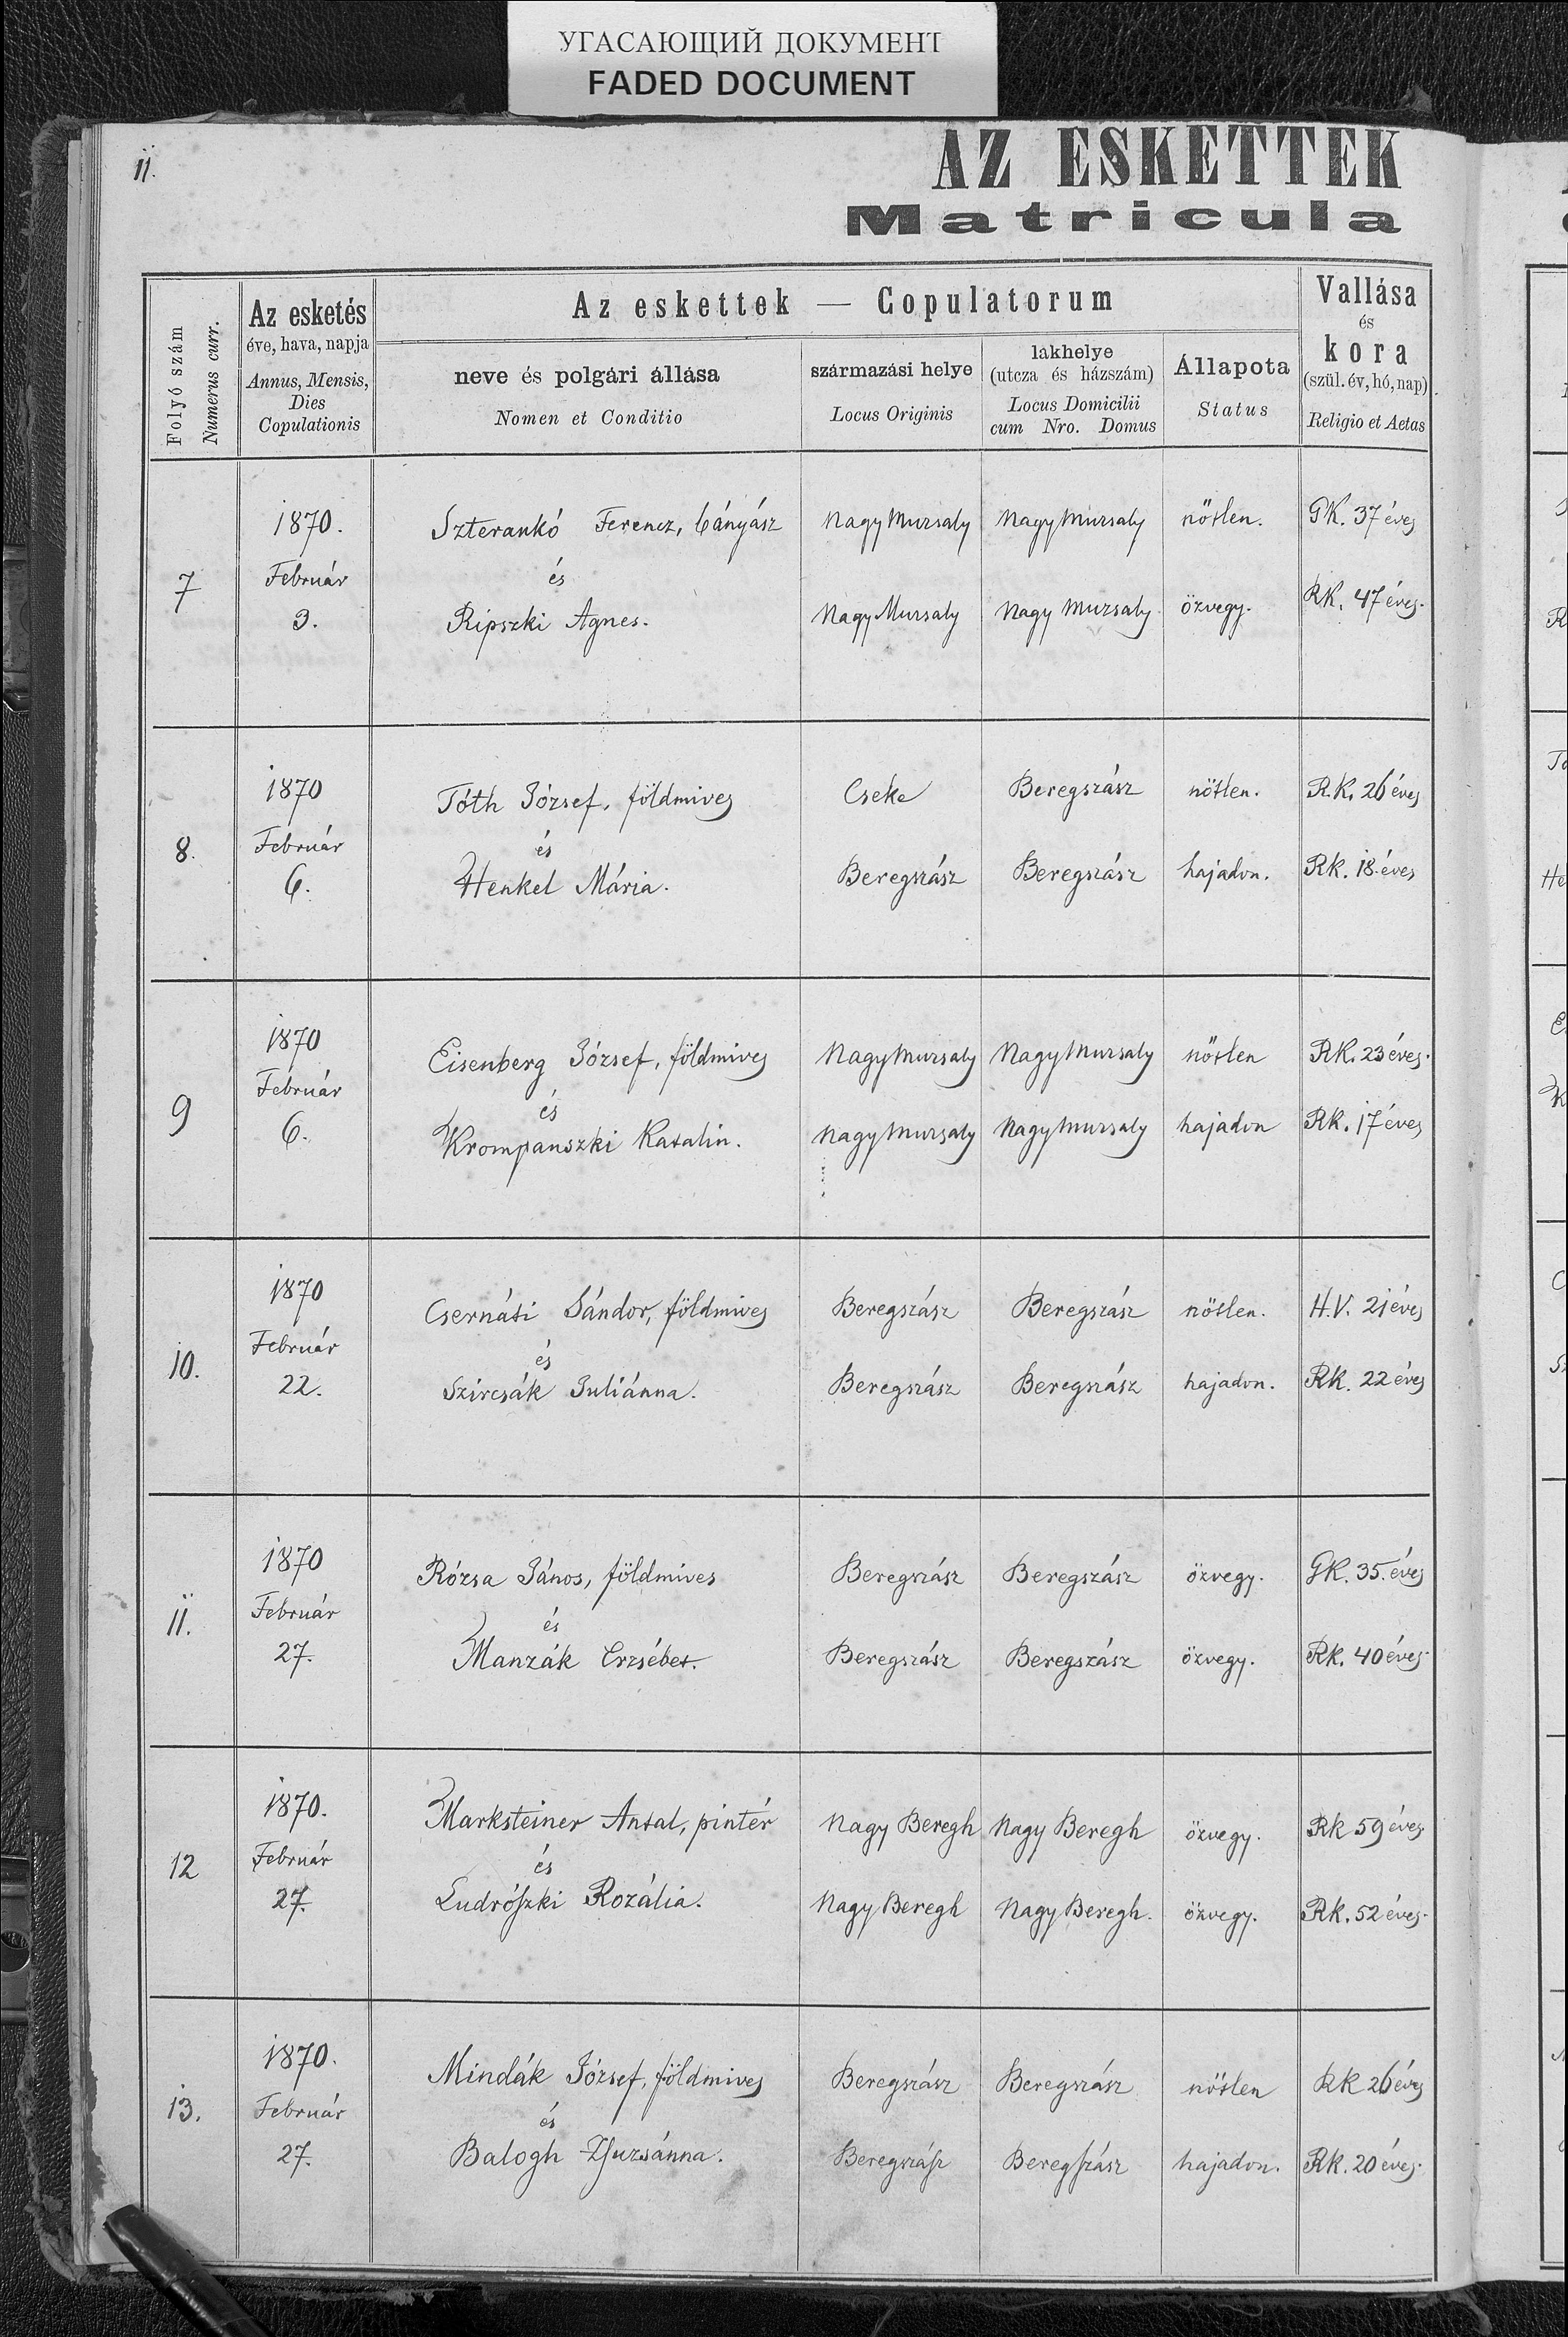 УГАСАЮЩИЙ ДОКУМЕНТ
FADED DOCUMENT
11.
AZ ESKETTEK
Matricula
Folyó szám
Numerus curr.
Az esketés
éve, hava, napja
Annus, Mensis,
Dies
Copulationis
Az eskettek — Copulatorum
neve és polgári állása
Nomen et Conditio
származási helye
Locus Originis
lakhelye
(utcza és házszám)
Locus Domicilii
cum Nro. Domus
Állapota
Status
Vallása
és
kora
(szül. év, hó, nap)
Religio et Aetas
1870. Szterankó Ferencz, bányász Nagy Muzsaly Nagy Muzsaly nőtlen. GK. 37 éves
7 Február és
3. Ripszki Agnes. Nagy Muzsaly Nagy Muzsaly özvegy. RK. 47 éves.
1870 Tóth József, földmives Cseke Beregszász nőtlen. R.K. 26 éves
8. Február és
6. Henkel Mária. Beregszász Beregszász hajadon. RK. 18 éves
1870 Eisenberg József, földmives Nagy Muzsaly Nagy Muzsaly nőtlen RK. 23 éves.
9 Február és
6. Krompanszki Katalin. Nagy Muzsaly Nagy Muzsaly hajadon RK. 17 éves
1870 Csernáti Sándor, földmives Beregszász Beregszász nőtlen. H.V. 21 éves
10. Február és
22. Szircsák Juliánna. Beregszász Beregszász hajadon. RK. 22 éves
1870 Rózsa János, földmives Beregszász Beregszász özvegy. GK. 35. éves
11. Február és
27. Manzák Erzsébet. Beregszász Beregszász özvegy. RK. 40 éves.
1870. Marksteiner Antal, pintér Nagy Beregh Nagy Beregh özvegy. RK 59 éves
12 Február és
27. Ludrószki Rozália. Nagy Beregh Nagy Beregh. özvegy. RK. 52 éves.
1870. Mindák József, földmives Beregszász Beregszász nőtlen RK 26 éves
13. Február és
27. Balogh Zsuzsánna. Beregszász Beregszász hajadon. RK. 20 éves.